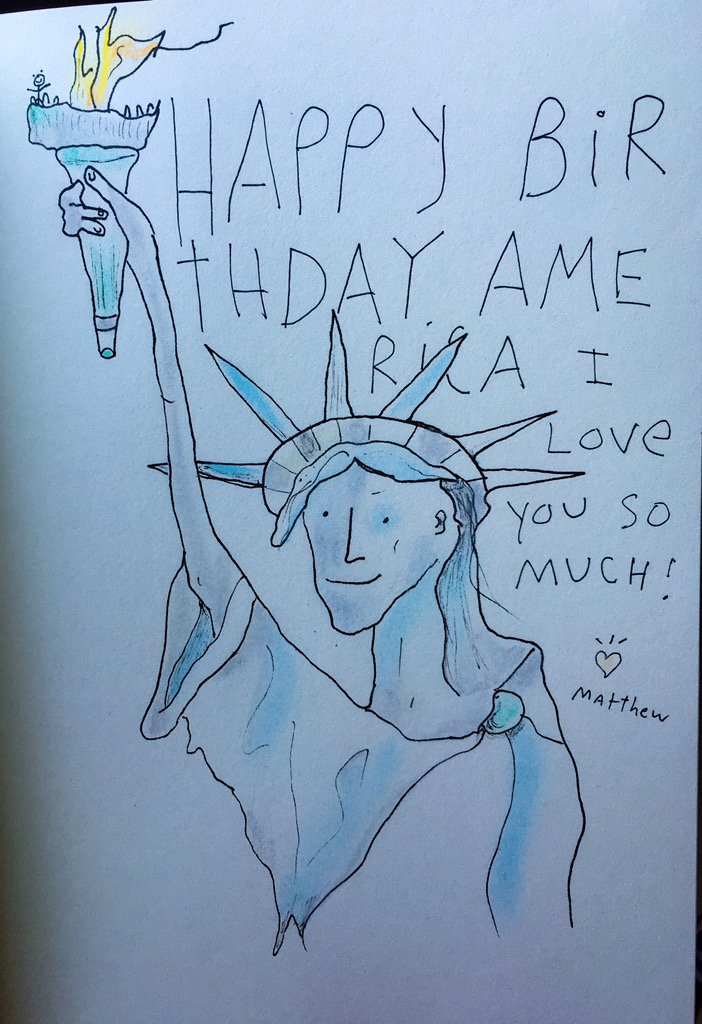 HAPPY BiR
tHDAY AME
RiCA I
LOVe
YOU SO
MUCH!
MATThew